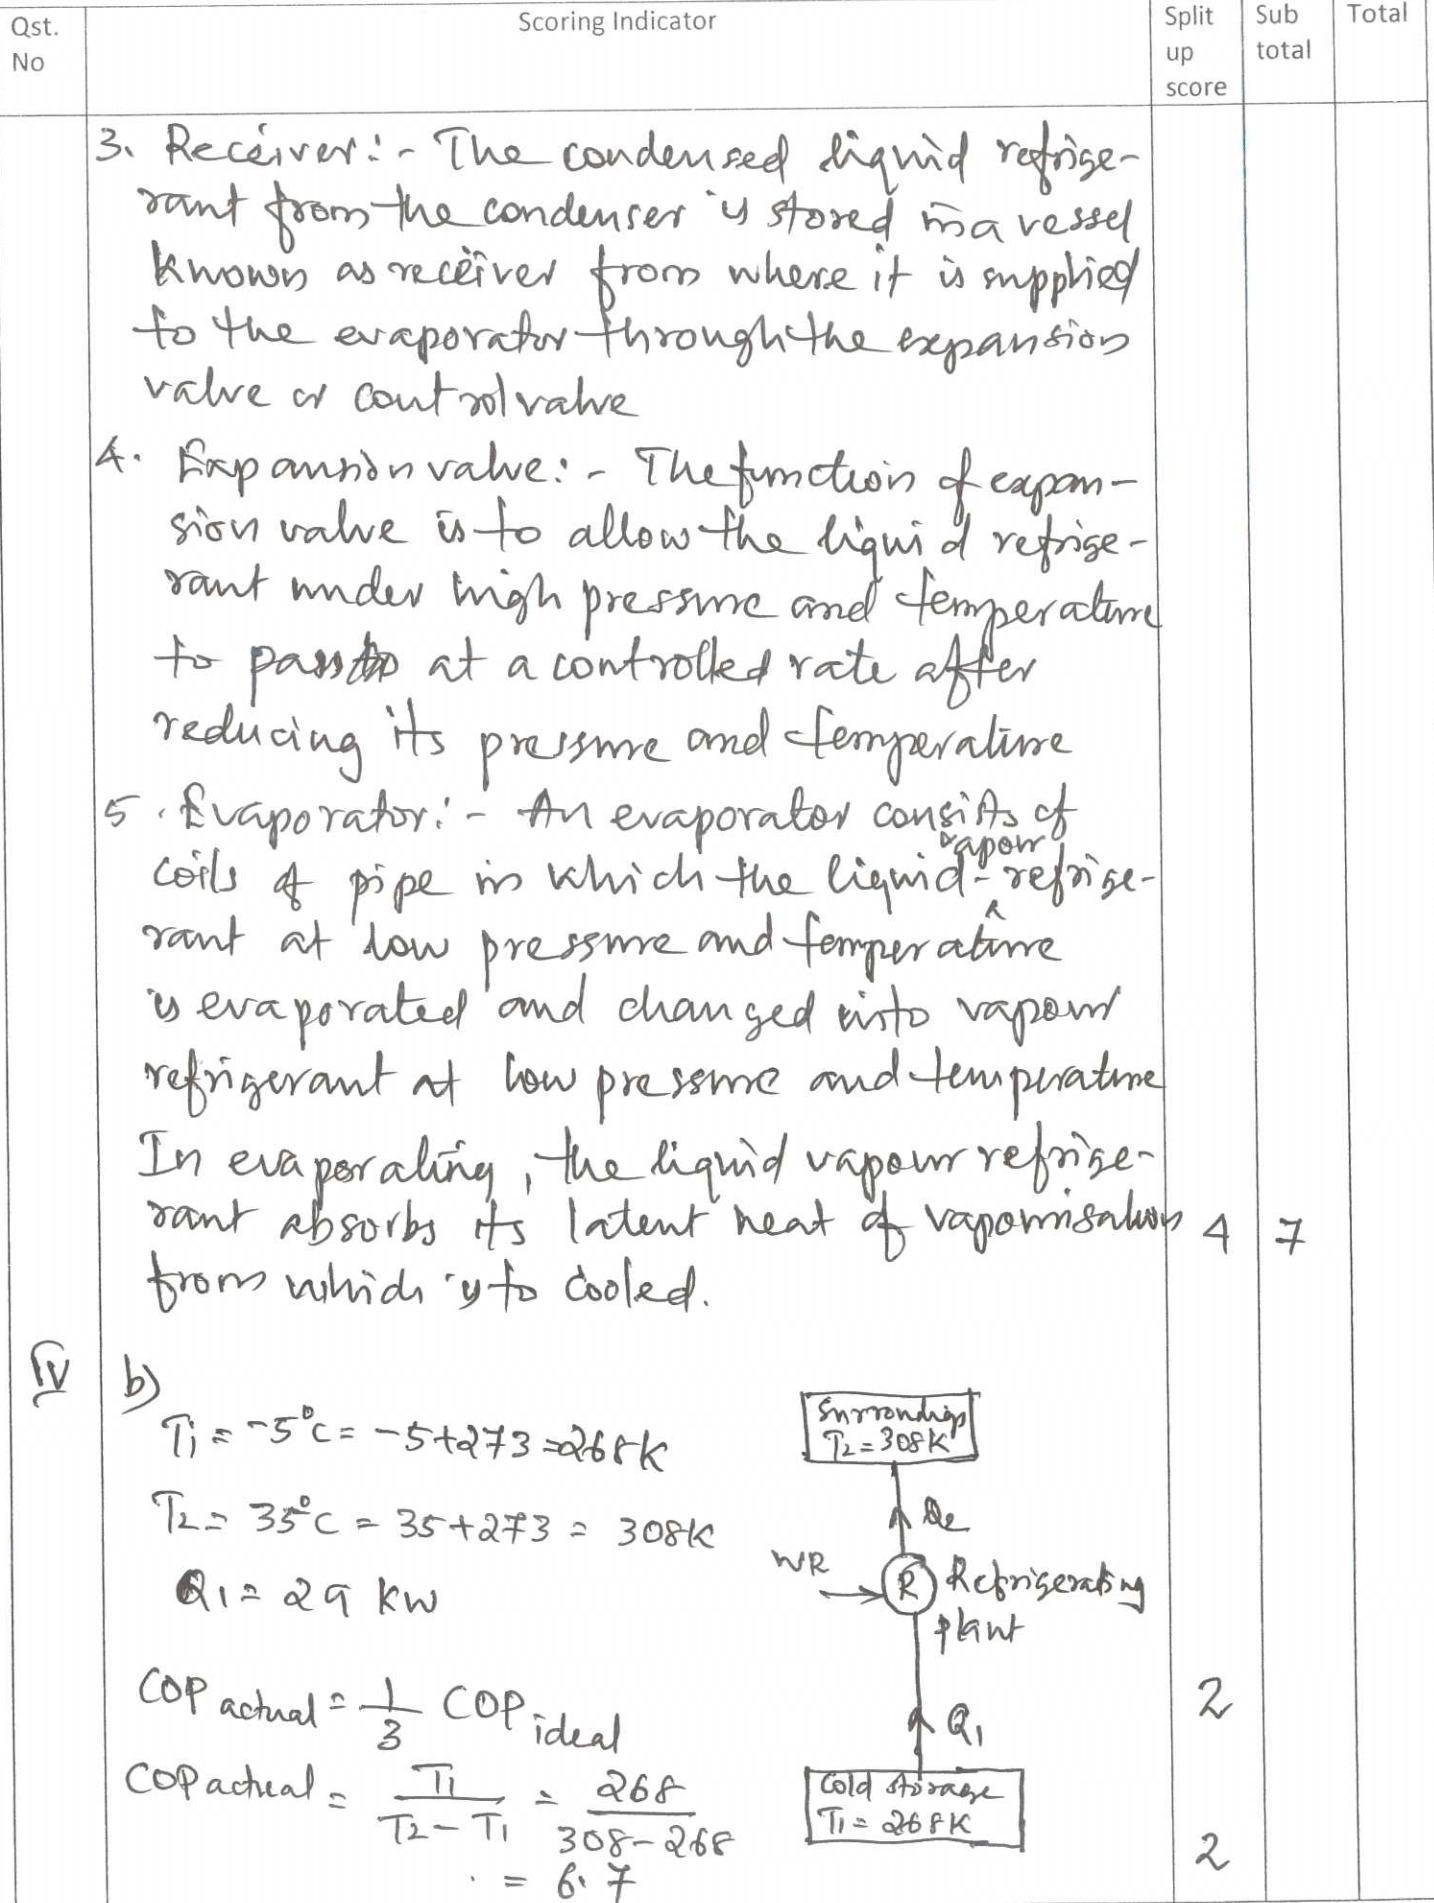 Qst. No
Scoring Indicator
Split up score
Sub total
Total
3. Receiver:- The condensed liquid refrige-
rant from the condenser is stored in a vessel
known as receiver from where it is supplied
to the evaporator through the expansion
valve or control valve
4. Expansion valve:- The function of expan-
sion valve is to allow the liquid refrige-
rant under high pressure and temperature
to pass at a controlled rate after
reducing its pressure and temperature
5. Evaporator:- An evaporator consists of
coils of pipe in which the liquid-vapour refrige-
rant at low pressure and temperature
is evaporated and changed into vapour
refrigerant at low pressure and temperature
In evaporating, the liquid vapour refrige-
rant absorbs its latent heat of vapourisation 4 7
from which is to cooled.
IV b)
T1 = -5°C = -5+273 = 268K
T2 = 35°C = 35+273 = 308K
Q1 = 29 kW
COP actual = 1/3 COP ideal 2
COP actual = T1/(T2-T1) = 268/(308-268) 2
= 6.7
Surroundings
T2 = 308K
WR
R
Refrigerating
plant
Q1
Cold storage
T1 = 268K